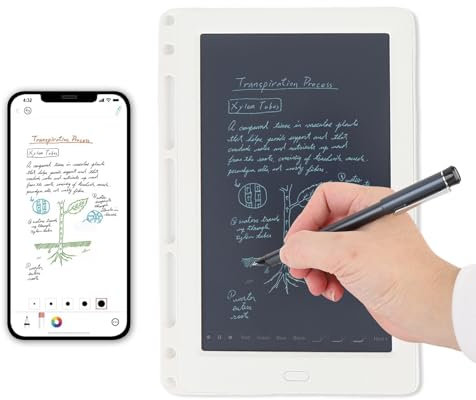 4:32
Transpiration Process
Xylem Tubes
A compound tissue in vascular plants
that helps provide support and that
conducts water and nutrients up ward
from the roots, consisting of tracheids, vessels,
parenchyma cells, and woody fibers.
water
enters
roots
Transpiration Process
Xylem Tubes
A compound tissue in vascular plants
that helps provide support and that
conducts water and nutrients up ward
from the roots, consisting of tracheids, vessels,
parenchyma cells, and woody fibers.
② water travels
up through
xylem tubes
① water
enters
roots